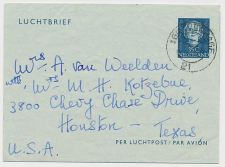 LUCHTBRIEF
Mrs A. van Weelden
Mrs M. H. Kotzebue,
3800 Chevy Chase Drive,
Houston - Texas
U.S.A.
PER LUCHTPOST / PAR AVION